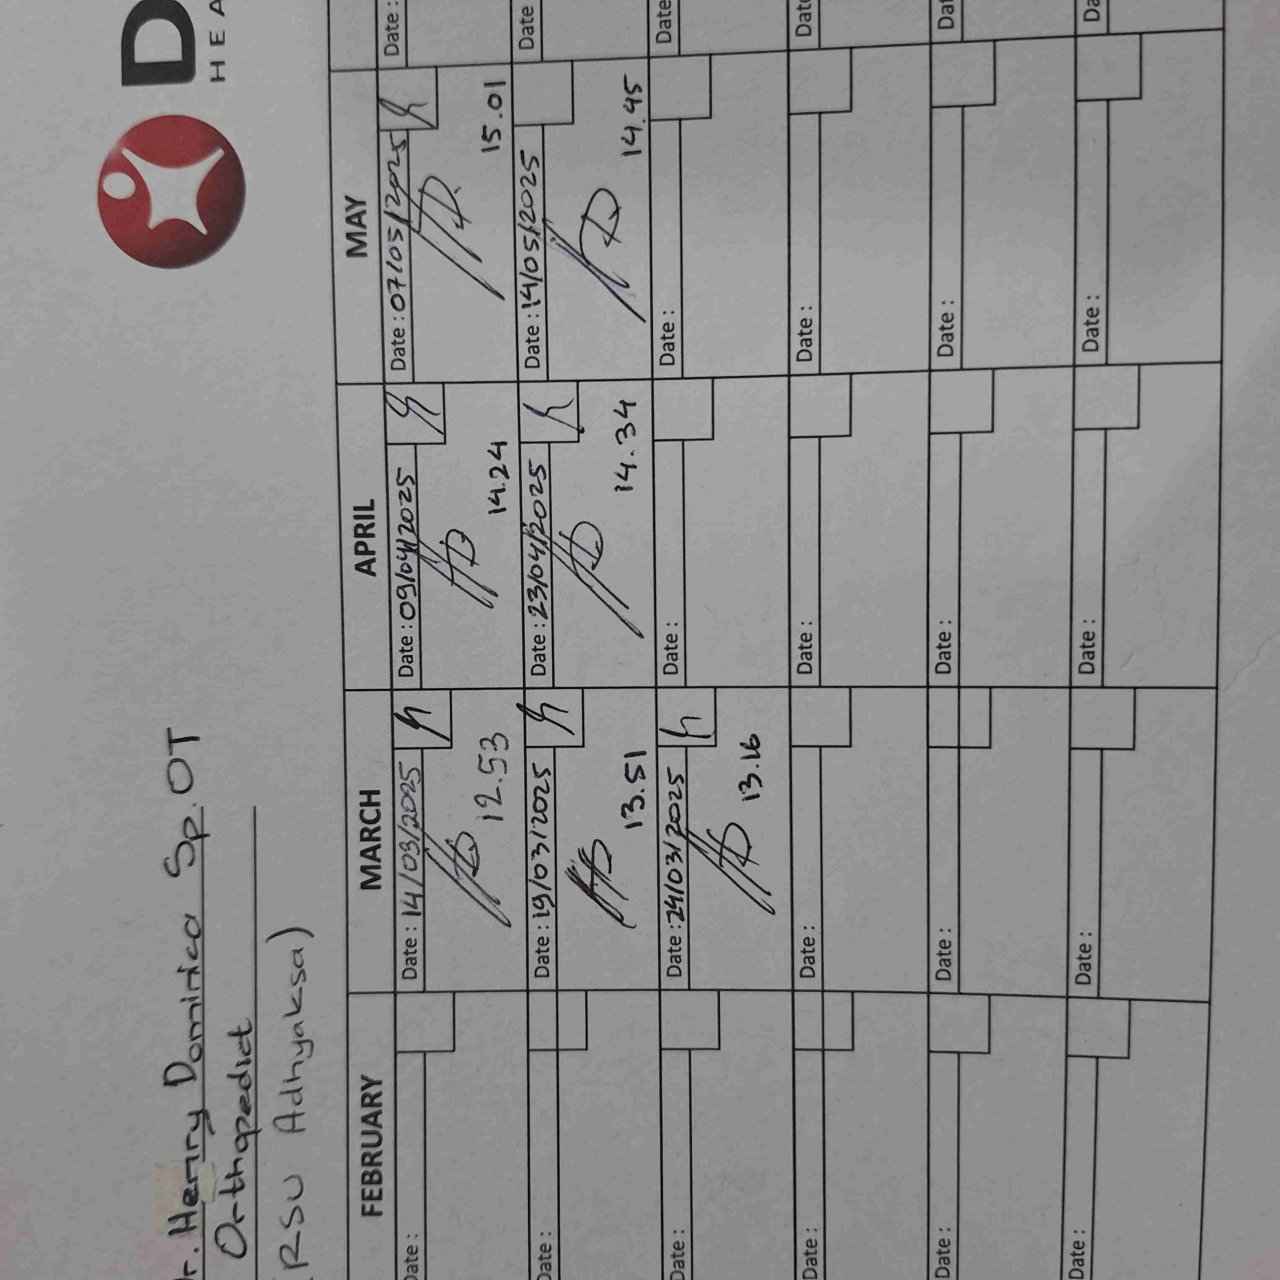 r. Henry Dominica Sp.OT
Orthopedict
(RSU Adhyaksa)
D
HEA
FEBRUARY MARCH APRIL MAY
Date : Date : 14/03/2025 Date : 09/04/2025 Date : 07/05/2025 Date :
12.53 14.24 15.01
Date : Date : 19/03/2025 Date : 23/04/2025 Date : 14/05/2025 Date
13.51 14.34 14.45
Date : Date : 24/03/2025 Date : Date : Date
13.16
Date : Date : Date : Date : Date
Date : Date : Date : Date : Dat
Date : Date : Date : Date : Da